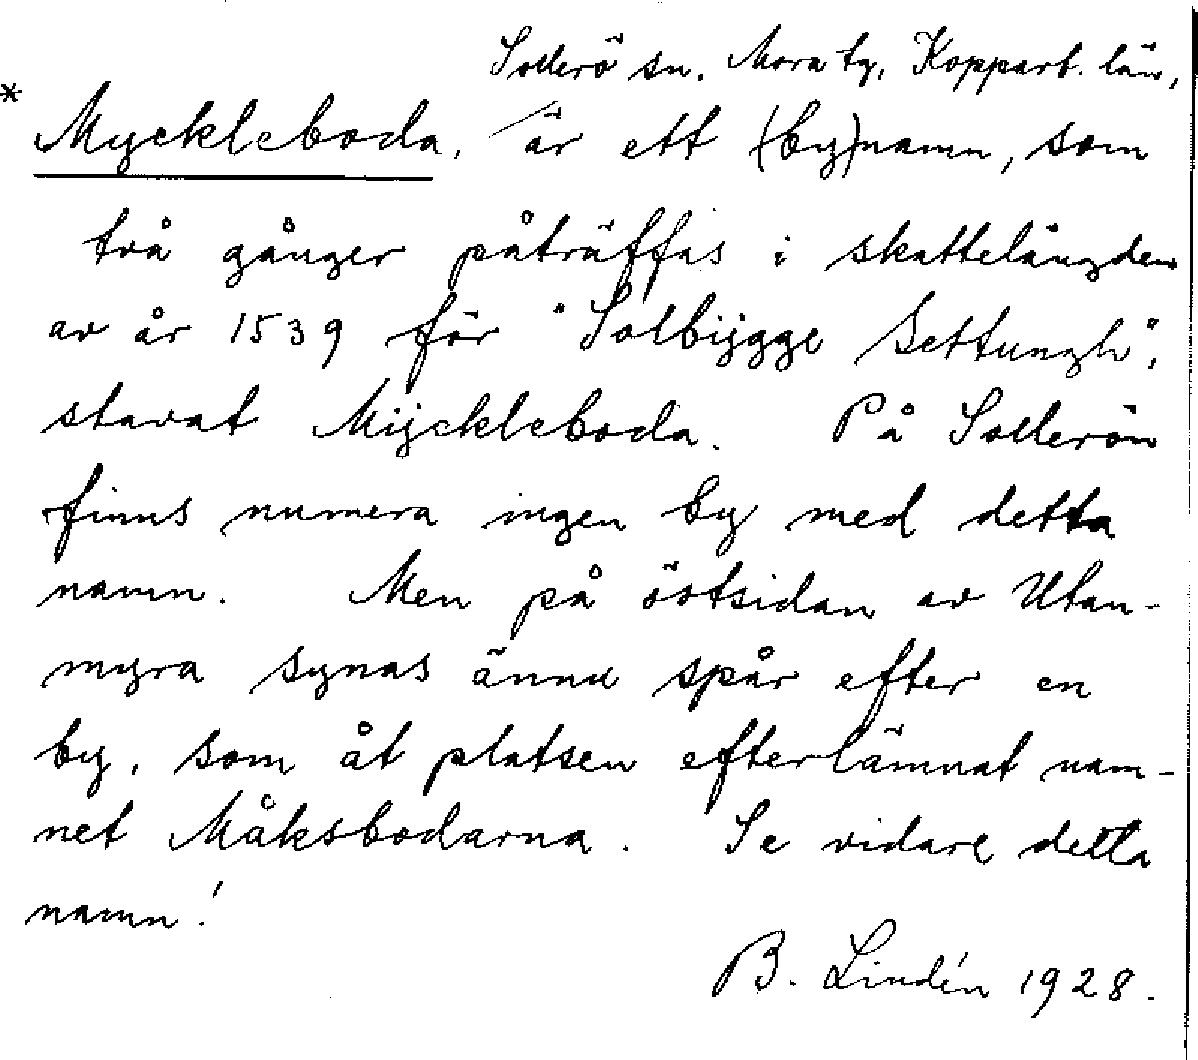 Sollerö sn. Mora tg, Kopparb. län,
* Myckleboda, är ett (by)namn, som
två gånger påträffas i skattelängden
av år 1539 för "Solbijgge Settungh",
stavat Mijckleboda. På Sollerön
finns numera ingen by med detta
namn. Men på östsidan av Utan-
myra synas ännu spår efter en
by, som åt platsen efterlämnat nam-
net Måksbodarna. Se vidare detta
namn!
B. Lindén 1928.